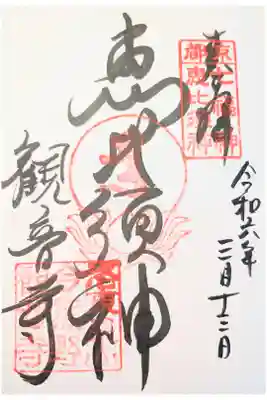 奉拝
令和六年
三月十三日
恵比須神
観音寺